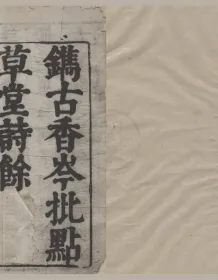 鐫古香岑批點
草堂詩餘